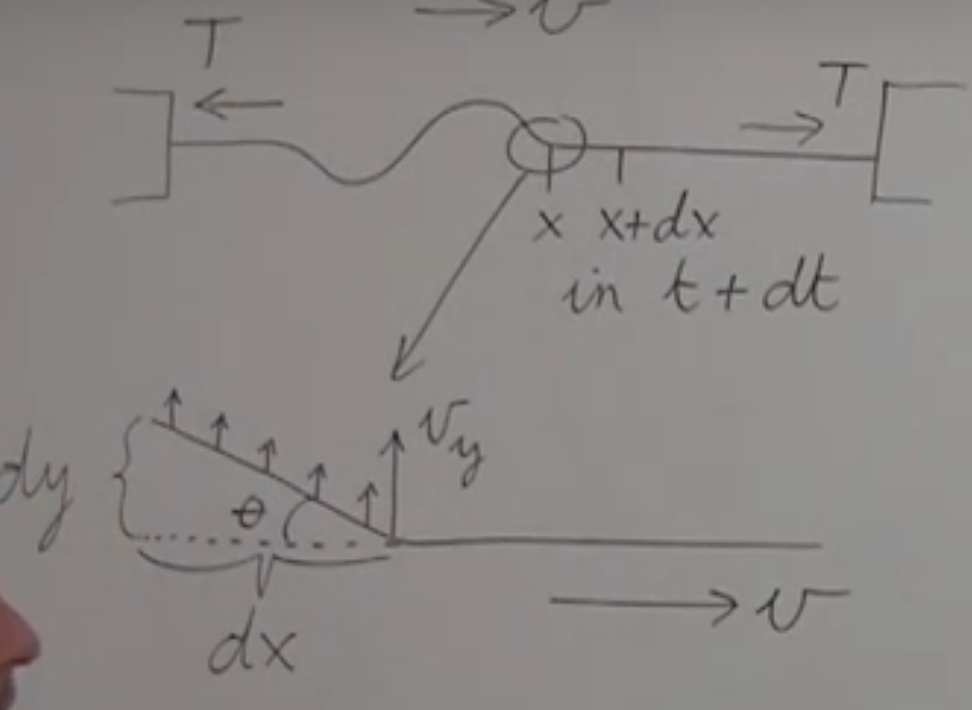 v
T
T
x x+dx
in t+dt
v_y
dy
θ
v
dx